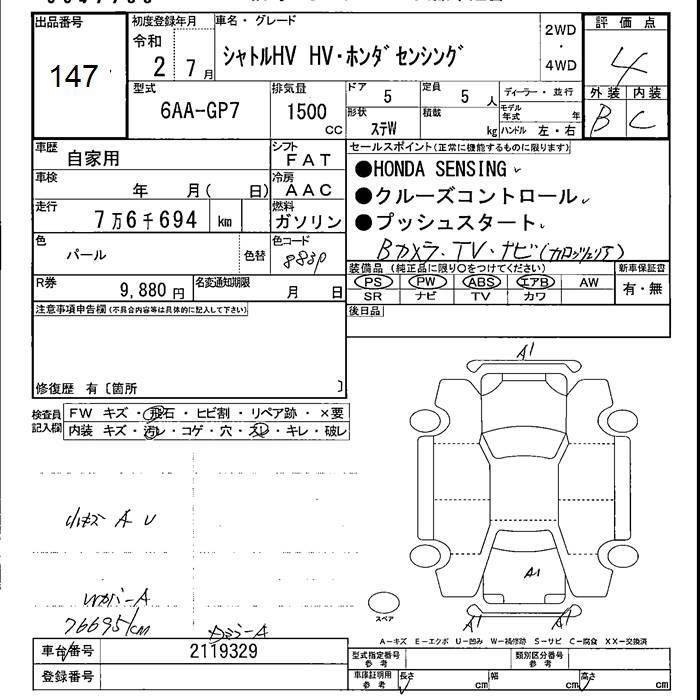 出品番号
147
初度登録年月
令和
2 7月
車名・グレード
シャトルHV HV・ホンダセンシング
2WD
・
4WD
評価点
4
外装 内装
B C
型式
6AA-GP7
排気量
1500
CC
ドア
5
定員
5 人
ディーラー・並行
形状
ステW
積載
kg
モデル年式 年
ハンドル 左・右
車歴
自家用
シフト
FAT
車検
年 月( 日)
冷房
AAC
走行
7万6千694 km
燃料
ガソリン
色
パール
色替
色コード
883P
R券
9,880円
名変通知期限
月 日
セールスポイント(正常に機能するものに限ります)
●HONDA SENSING
●クルーズコントロール
●プッシュスタート
Bカメラ・TV・ナビ(カロッツェリア)
装備品(純正品に限り○をつけてください)
新車保証書
PS PW ABS エアB AW
有・無
SR ナビ TV カワ
後日品
注意事項申告欄(不具合内容等は具体的に記入して下さい)
修復歴 有〔箇所 〕
検査員
記入欄
FW キズ・飛石・ヒビ割・リペア跡・×要
内装 キズ・汚レ・コゲ・穴・スレ・キレ・破レ
小キズ A U
A1
A1
A1 A1
スペア
76695km
A-キズ E-エクボ U-凹み W-補修跡 S-サビ C-腐食 XX-交換済
車台番号
2119329
登録番号
型式指定番号
参考
類別区分番号
参考
車庫証明用
参考
長さ cm 幅 cm 高さ cm